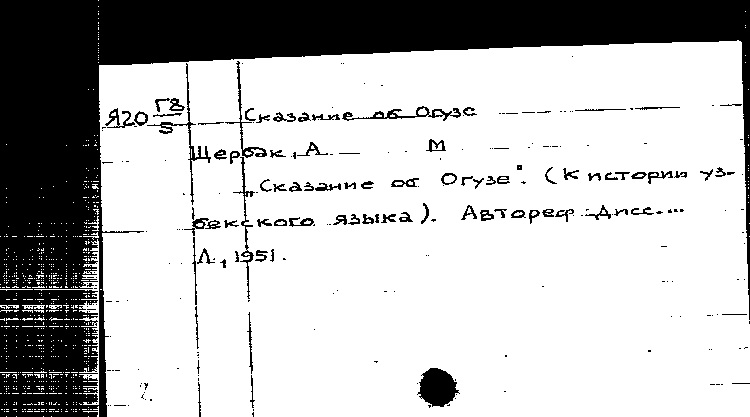 Я20 Г8/5 Сказание об Огузе
Щербак, А М
„Сказание об Огузе". (К истории уз-
бекского языка). Автореф. дисс....
Л., 1951.
2.